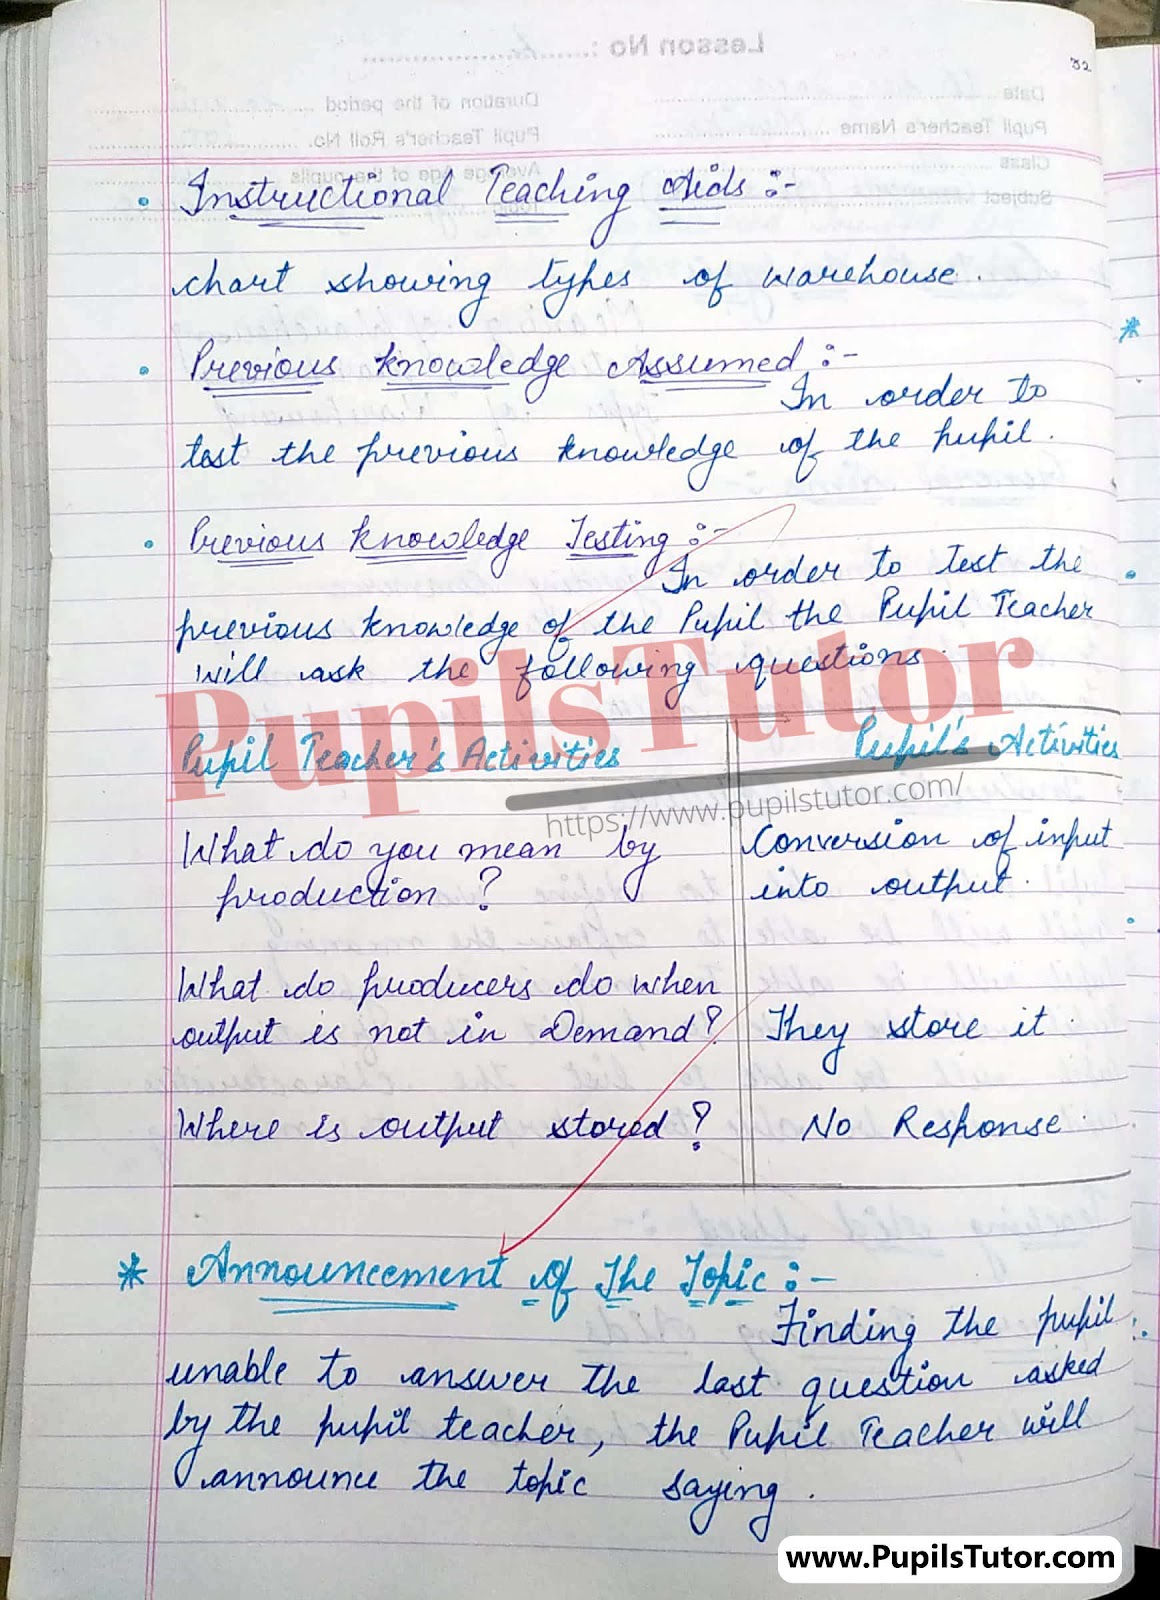 32
Instructional Teaching Aids :-
chart showing types of warehouse.
Previous knowledge Assumed :-
In order to
test the previous knowledge of the pupil.
Previous knowledge Testing :-
In order to test the
previous knowledge of the Pupil the Pupil Teacher
will ask the following questions.
PupilsTutor
https://www.pupilstutor.com/
Pupil Teacher's Activities
Pupil's Activities
What do you mean by
production ?
Conversion of input
into output.
What do producers do when
output is not in Demand?
They store it.
Where is output stored ?
No Response.
* Announcement of The Topic :-
Finding the pupil
unable to answer the last question asked
by the pupil teacher, the Pupil Teacher will
announce the topic saying.
www.PupilsTutor.com
Lesson No :
Date
Duration of the period
Pupil Teacher's Name
Pupil Teacher's Roll No.
Class
Average Age of the pupils
Subject